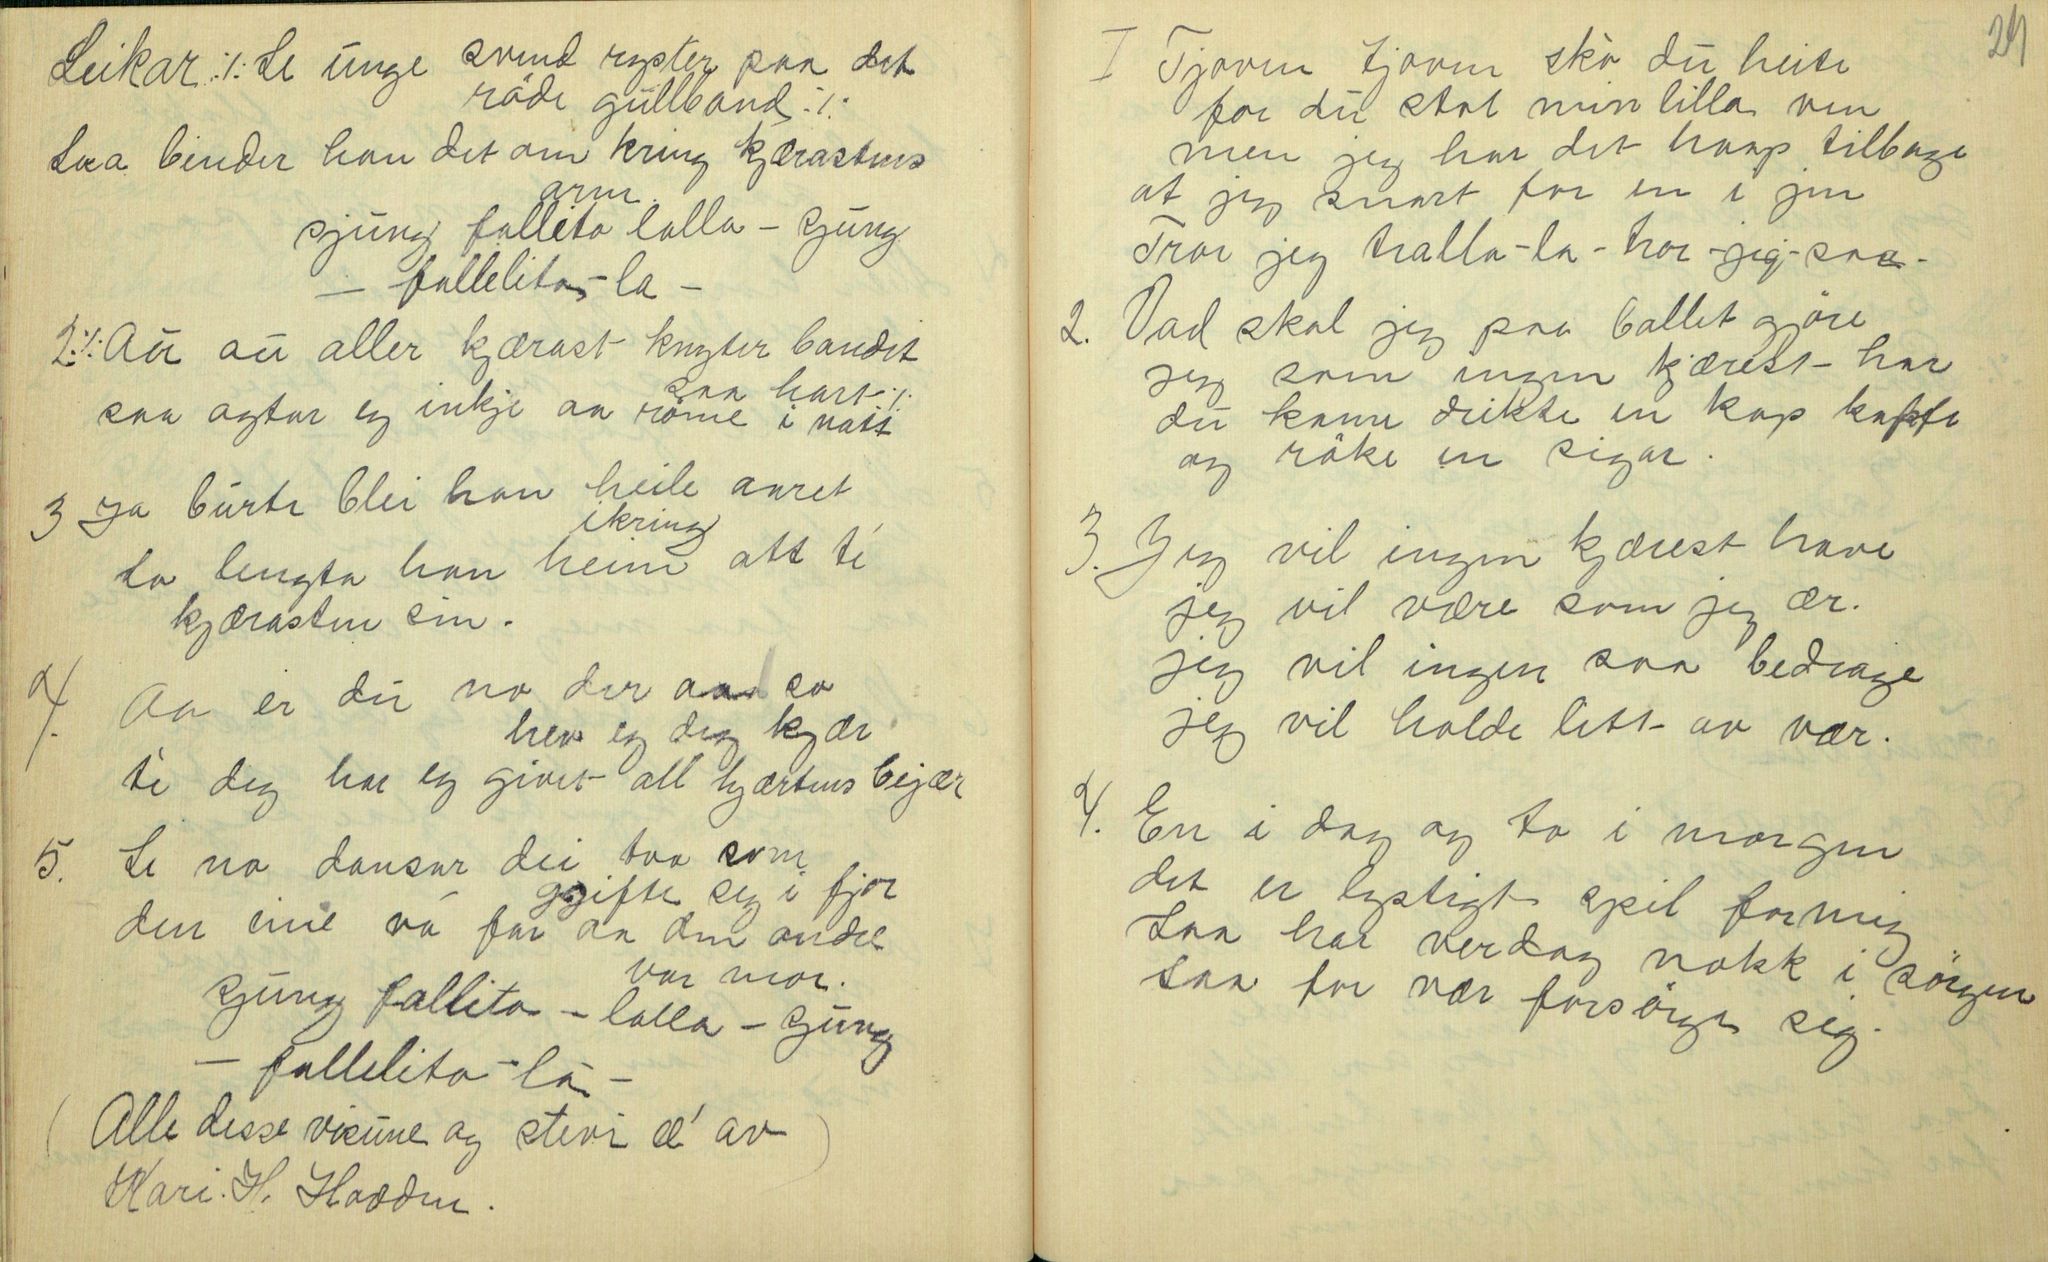 Leikar :/: Se unge svend ryster paa det
röde gullband :/:
Saa binder han det om kring kjærastens
arm.
sjung fallita lalla - sjung
- fallelita - la -
2 :/: Au au aller kjærast knyter bandet
saa hart :/:
saa agtar eg inkje aa röme i natt
3 Ja burte blei han heile aaret
ikring
so lengta han heim att te'
kjærasten sin.
4. Aa er du no der aaa so
hev eg deg kjær
te' deg har eg givet all hjærtens bejær
5. Se no dansar dei too som
gifte seg i fjor
den eine va far aa den andre
var mor.
sjung fallita - lalla - sjung
- fallelita - la -
(Alle desse visune og stevi æ' av)
Kari. H. Hadden.
24
I Tjoven tjoven ska du heite
for du stal min lilla ven
men jeg har det haap tilbage
at jeg snart for en i jen
Tror jeg tralla-la - tror - jeg - saa -
2. Vad skal jeg paa ballet gjöre
jeg som ingen kjærest har
du kann drikke en kop kaffe
og röke en sigar.
3. Jeg vil ingen kjærest have
jeg vil være som jeg ær.
jeg vil ingen saa bedrage
jeg vil holde lett av vær.
4. En i dag og to i morgen
det er lystigt spil for mig
Saa har verdag nokk i sörgen
saa for vær forsörge sig.